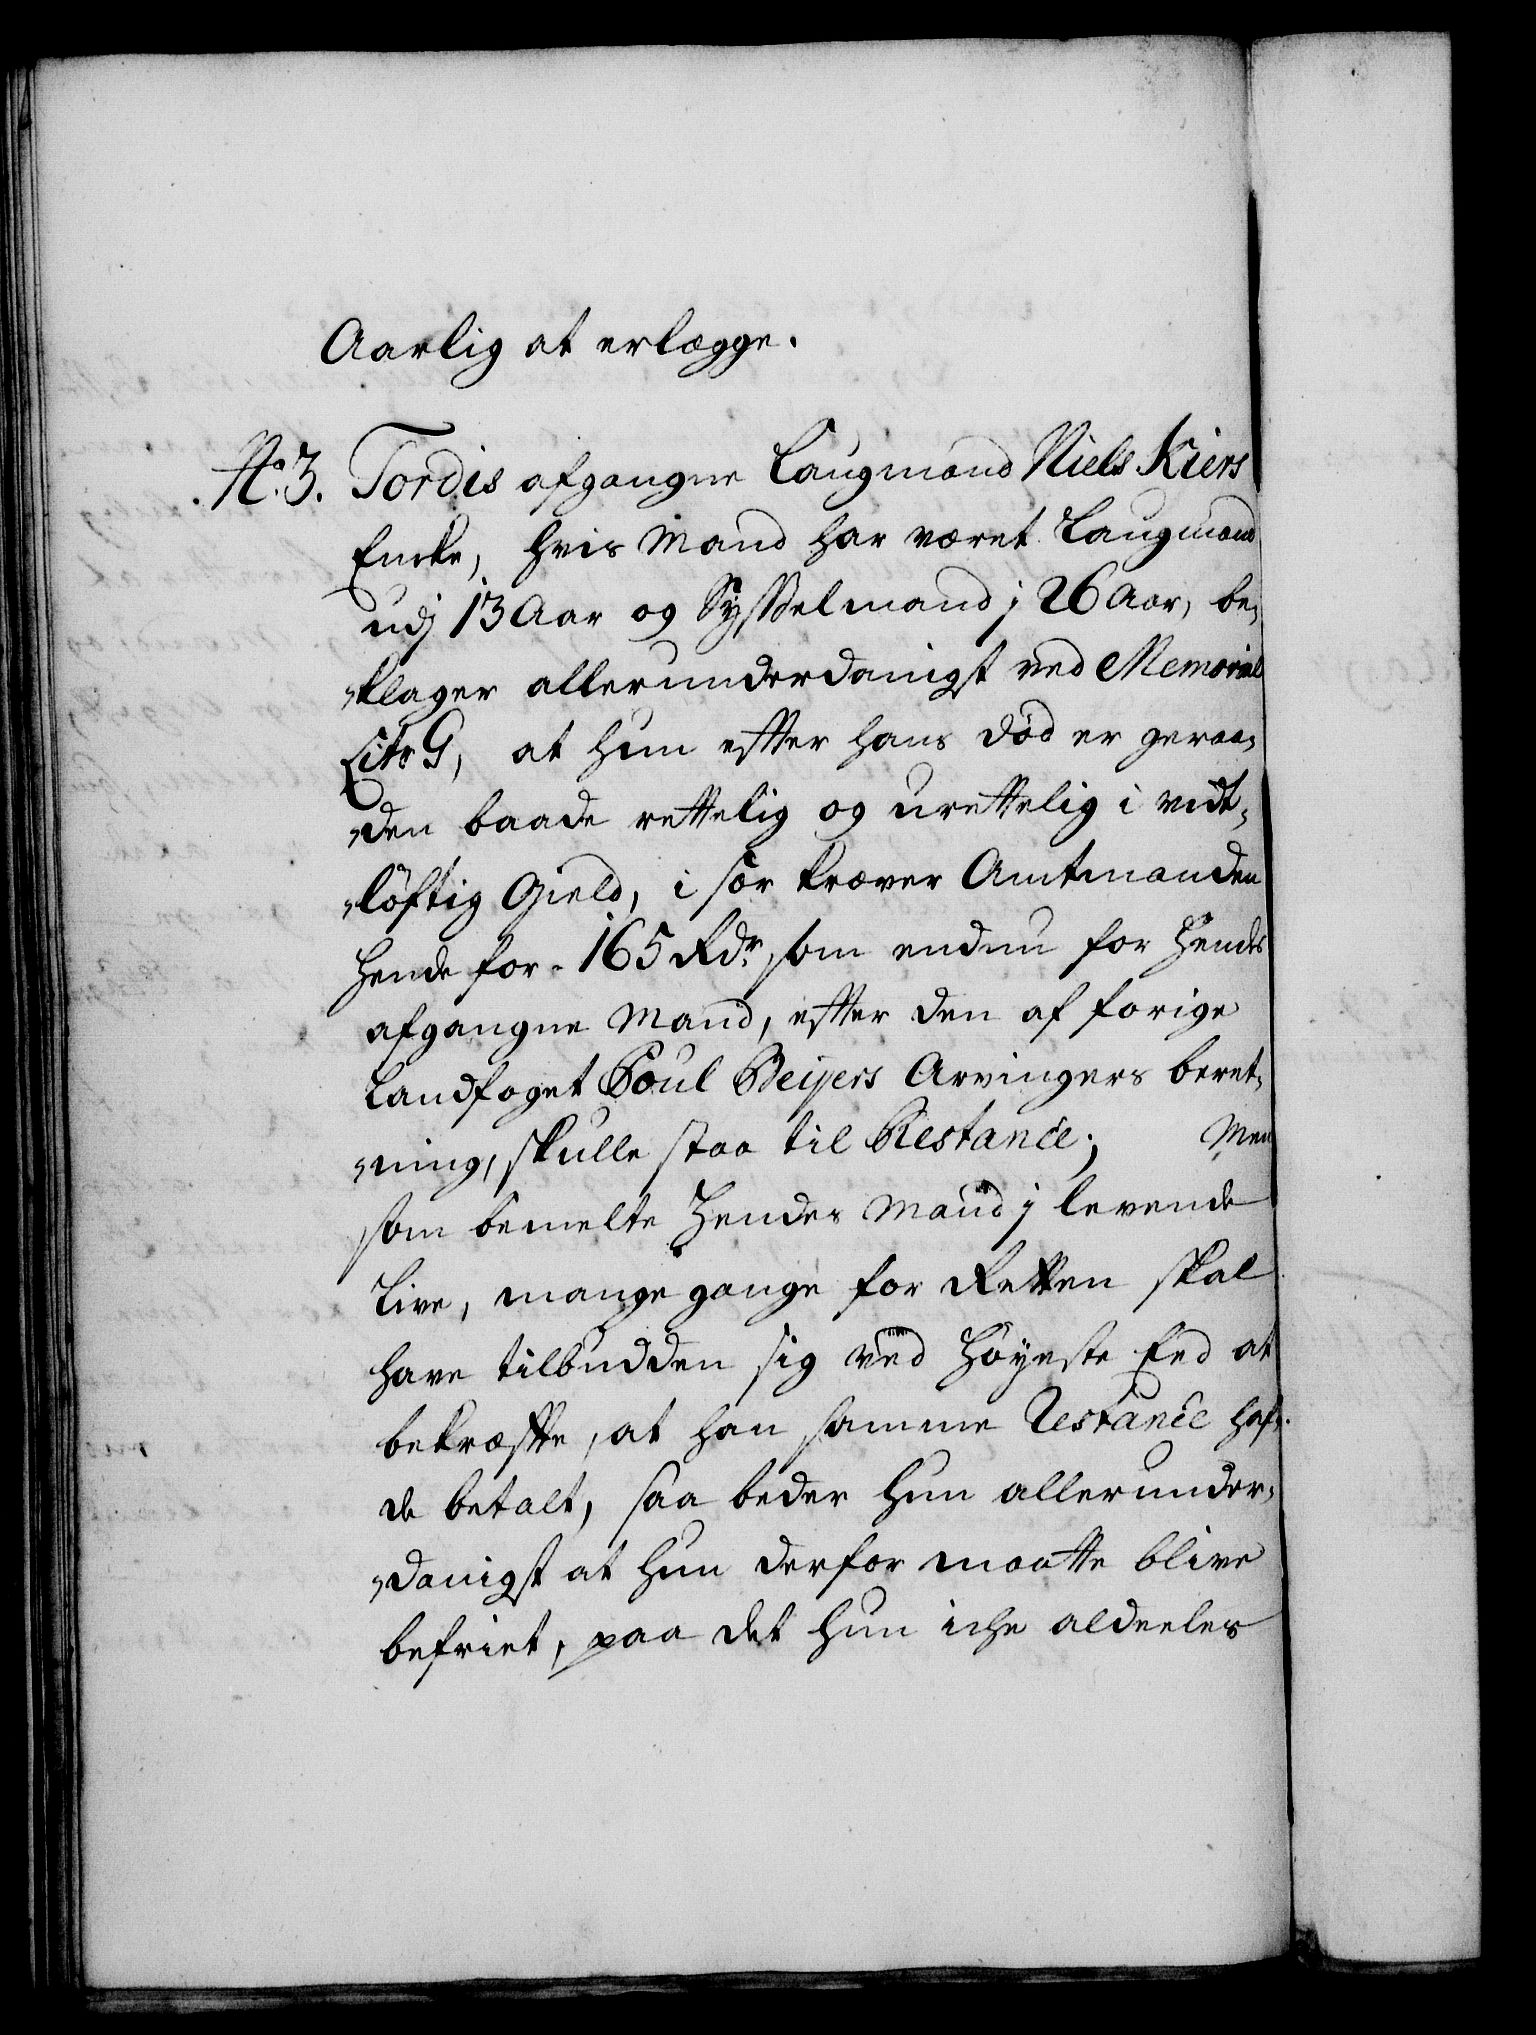 Aarlig at erlægge.
No. 3. Tordis afgangne Laugmand Niels Kiers
Encke, hvis Mand har været Laugmand
udj 13 Aar og Sysselmand j 26 Aar, be„
„klager allerunderdanigst ved Memorial
Litr G, at hun efter hans död er geraa„
„den baade rettelig og urettelig i vidt„
„löftig Gield, i sær kræver Amtmanden
hende for 165 Rdr. som endnu for hendes
afgangne Mand, efter den af forige
Landfoget Poul Beijers Arvingers beret„
„ning, skulle staa til Restance; Men
som bemelte hendes Mand j levende
Live, mange gange for Retten skal
have tilbudden sig ved höyeste Eed at
bekræfte, at han samme Restance haf„
de betalt, saa beder hun allerunder„
„danigst at hun derfor maatte blive
befriet, paa det hun iche aldeeles